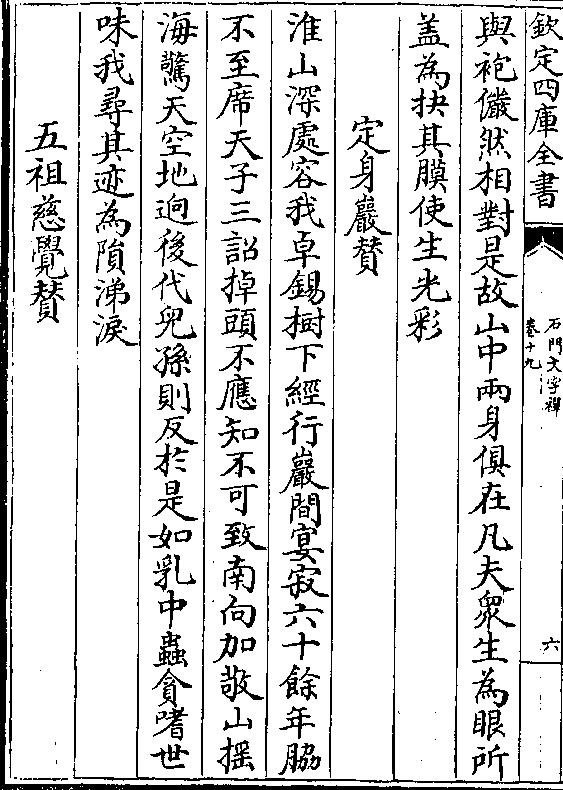 欽定四庫全書
石門文字禪
卷十九
六
與袍儼然相對是故山中兩身俱在凡夫衆生為眼所
盖為抉其膜使生光彩
定身巖賛
淮山深處容我卓錫樹下經行巖間宴寂六十餘年脇
不至席天子三詔掉頭不應知不可致南向加敬山揺
海驚天空地逈後代兒孫則反於是如乳中蟲貪嗜世
味我尋其迹為隕涕淚
五祖慈覺賛